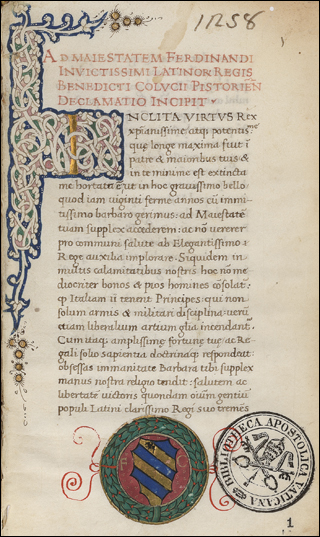 1258
AD MAIESTATEM FERDINANDI
INVICTISSIMI LATINOR REGIS
BENEDICTI COLVCII PISTORIEN
DECLAMATIO INCIPIT
INCLITA VIRTVS Rex
xpianissime atq potentis
que longe maxima fuit i
patre & maioribus tuis &
in te minime est extincta
me hortata e ut in hoc gravissimo bello
quod iam viginti ferme annos cu immi
tissimo barbaro gerimus: ad Maiestate
tuam supplex accederem: ac no vererer
pro communi salute ab Elegantissimo
Rege auxilia implorare. Siquidem in
multis calamitatibus nostris hoc no me
diocriter bonos & pios homines cosolat:
q Italiam ii tenent Principes qui non
solum armis & militari disciplina: veru
etiam liberalium artium gl̃ia incendant.
Cum itaq amplissime fortune tue ac Re
gali solio sapientia doctrinaq respondeat:
obsessas immanitate Barbara tibi supplex
manus nostra religio tendit: salutem ac
libertate victoris quondam oium gentiu
populi Latini clarissimo Regi suo tremes
BIBLIOTHECA APOSTOLICA VATICANA
1